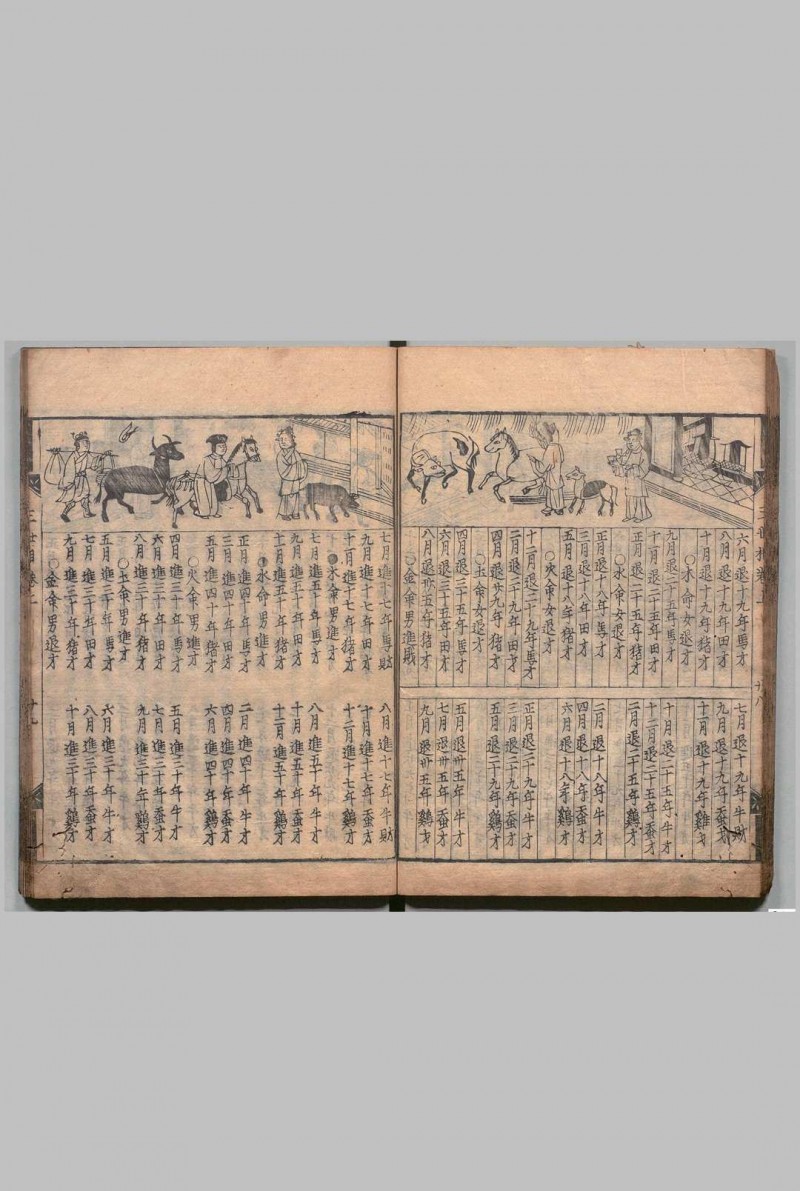 三世相卷上
十八
六月退十九年馬才
七月退十九年牛財
八月退十九年田才
九月退十九年蚕才
十月退十九年猪才
十一月退十九年雞才
○木命女退才
九月退二十五年馬才
十月退二十五年牛才
十一月退二十五年田才
十二月退二十五年蚕才
正月退二十五年猪才
二月退二十五年鷄才
○水命女退才
正月退十八年馬才
二月退十八年牛才
三月退十八年田才
四月退十八年蚕才
五月退十八年猪才
六月退十八年鷄才
○火命女退才
十二月退二十九年馬才
正月退二十九年牛才
二月退二十九年田才
三月退二十九年蚕才
四月退廿九年猪才
五月退二十九年鷄才
○土命女退才
四月退三十五年馬才
五月退卅五年牛才
六月退三十五年田才
七月退卅五年蚕才
八月退卅五年猪才
九月退卅五年鷄才
○金命男進財
七月進十七年馬財
八月進十七年牛財
九月進十七年田才
十月進十七年蚕才
十一月進十七年猪才
十二月進十七年鷄才
木命男進才
七月進五十年馬才
八月進五十年牛才
九月進五十年田才
十月進五十年蚕才
十一月進五十年猪才
十二月進五十年鷄才
水命男進才
正月進四十年馬才
二月進四十年牛才
三月進四十年田才
四月進四十年蚕才
五月進四十年猪才
六月進四十年鷄才
○火命男進才
四月進三十年馬才
五月進三十年牛才
六月進三十年田才
七月進三十年蚕才
八月進三十年猪才
九月進三十年鷄才
○土命男進才
五月進三十年馬才
六月進三十年牛才
七月進三十年田才
八月進三十年蚕才
九月進三十年猪才
十月進三十年鷄才
○金命男退才
三世相卷上
十九